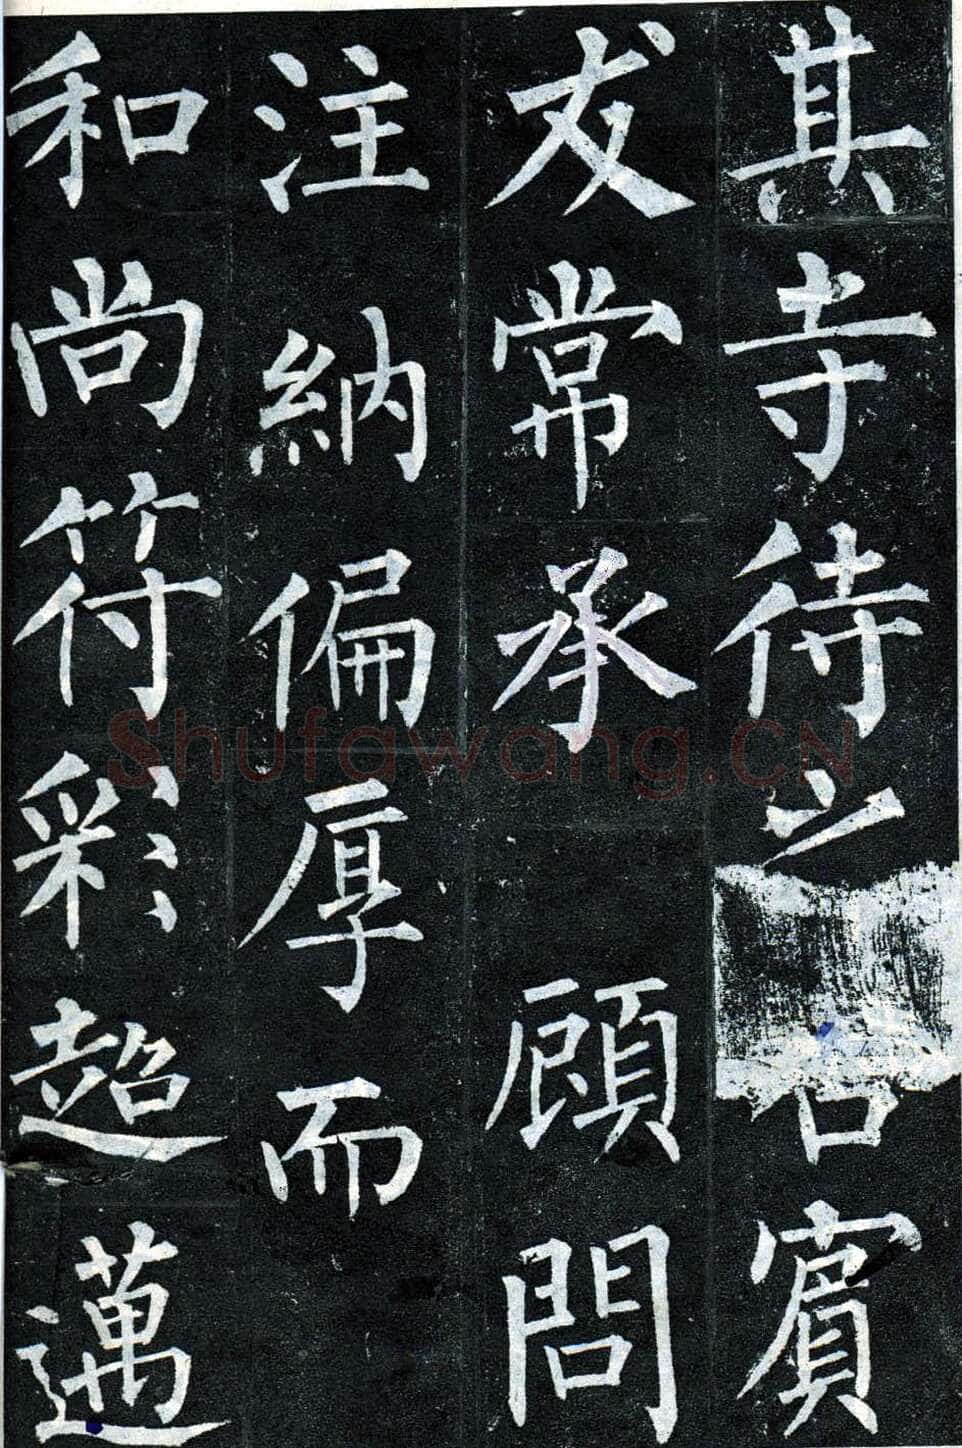 其寺待之賓
友常承顧問
注納偏厚而
和尚符彩超邁
Shufawang.CN